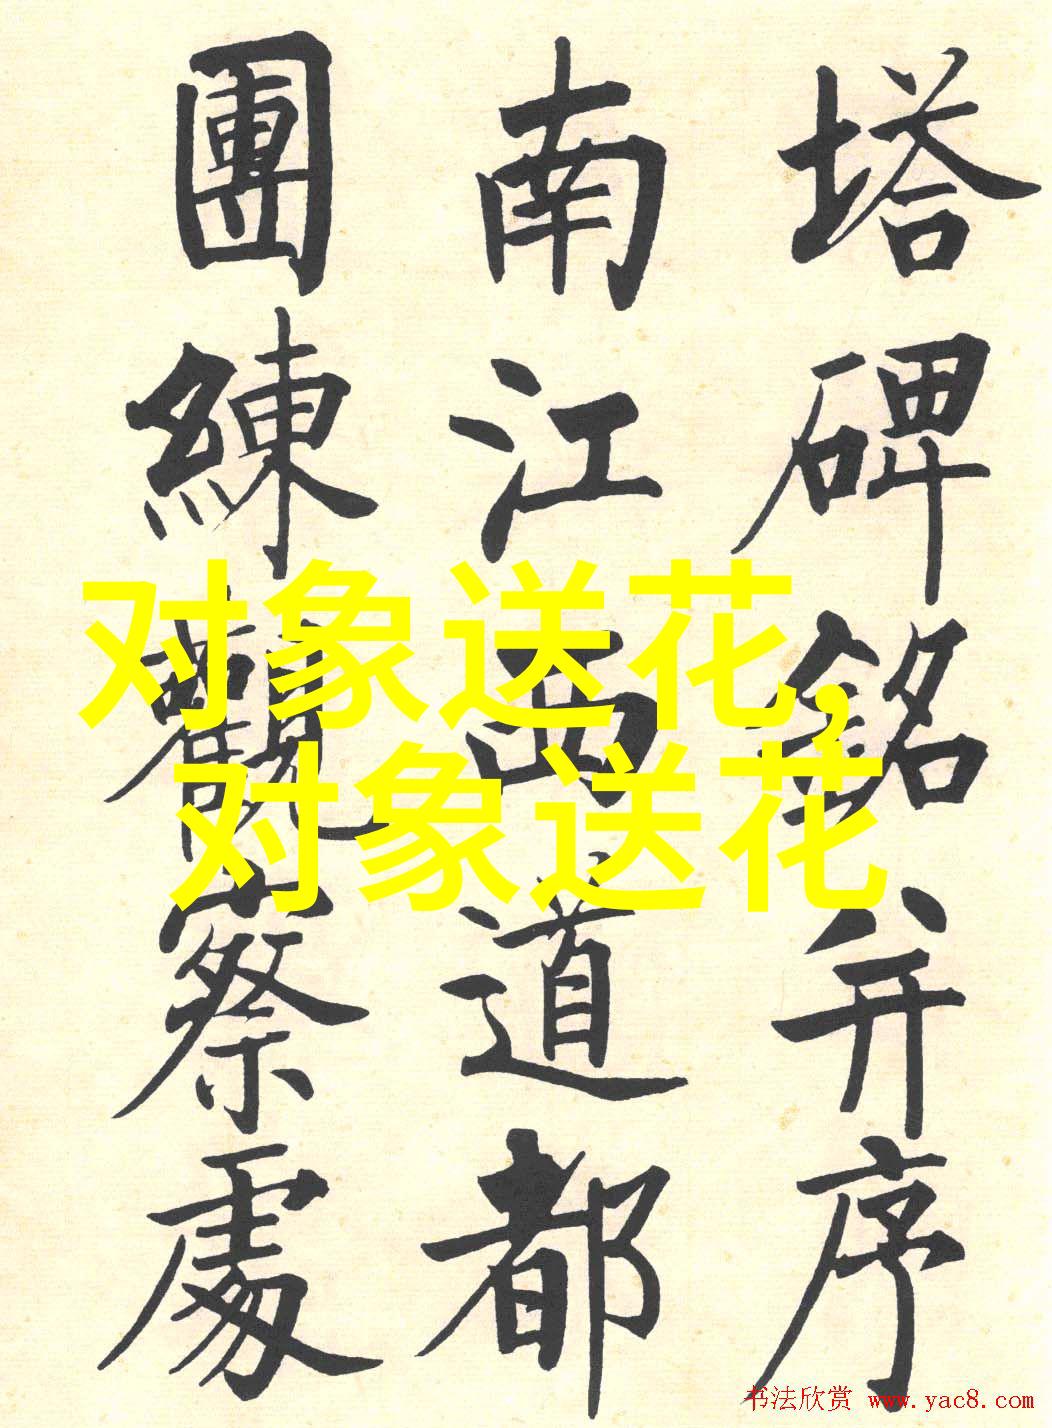 塔碑銘并序
南江西道都
團練觀察處
对象送花,
对象送花
书法欣赏 www.yac8.com